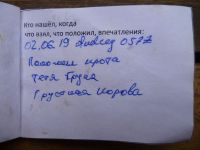 Кто нашёл, когда
что взял, что положил, впечатления:
02.06.19 Андрей
Положил крота
тётя Груня
Грустная Корова